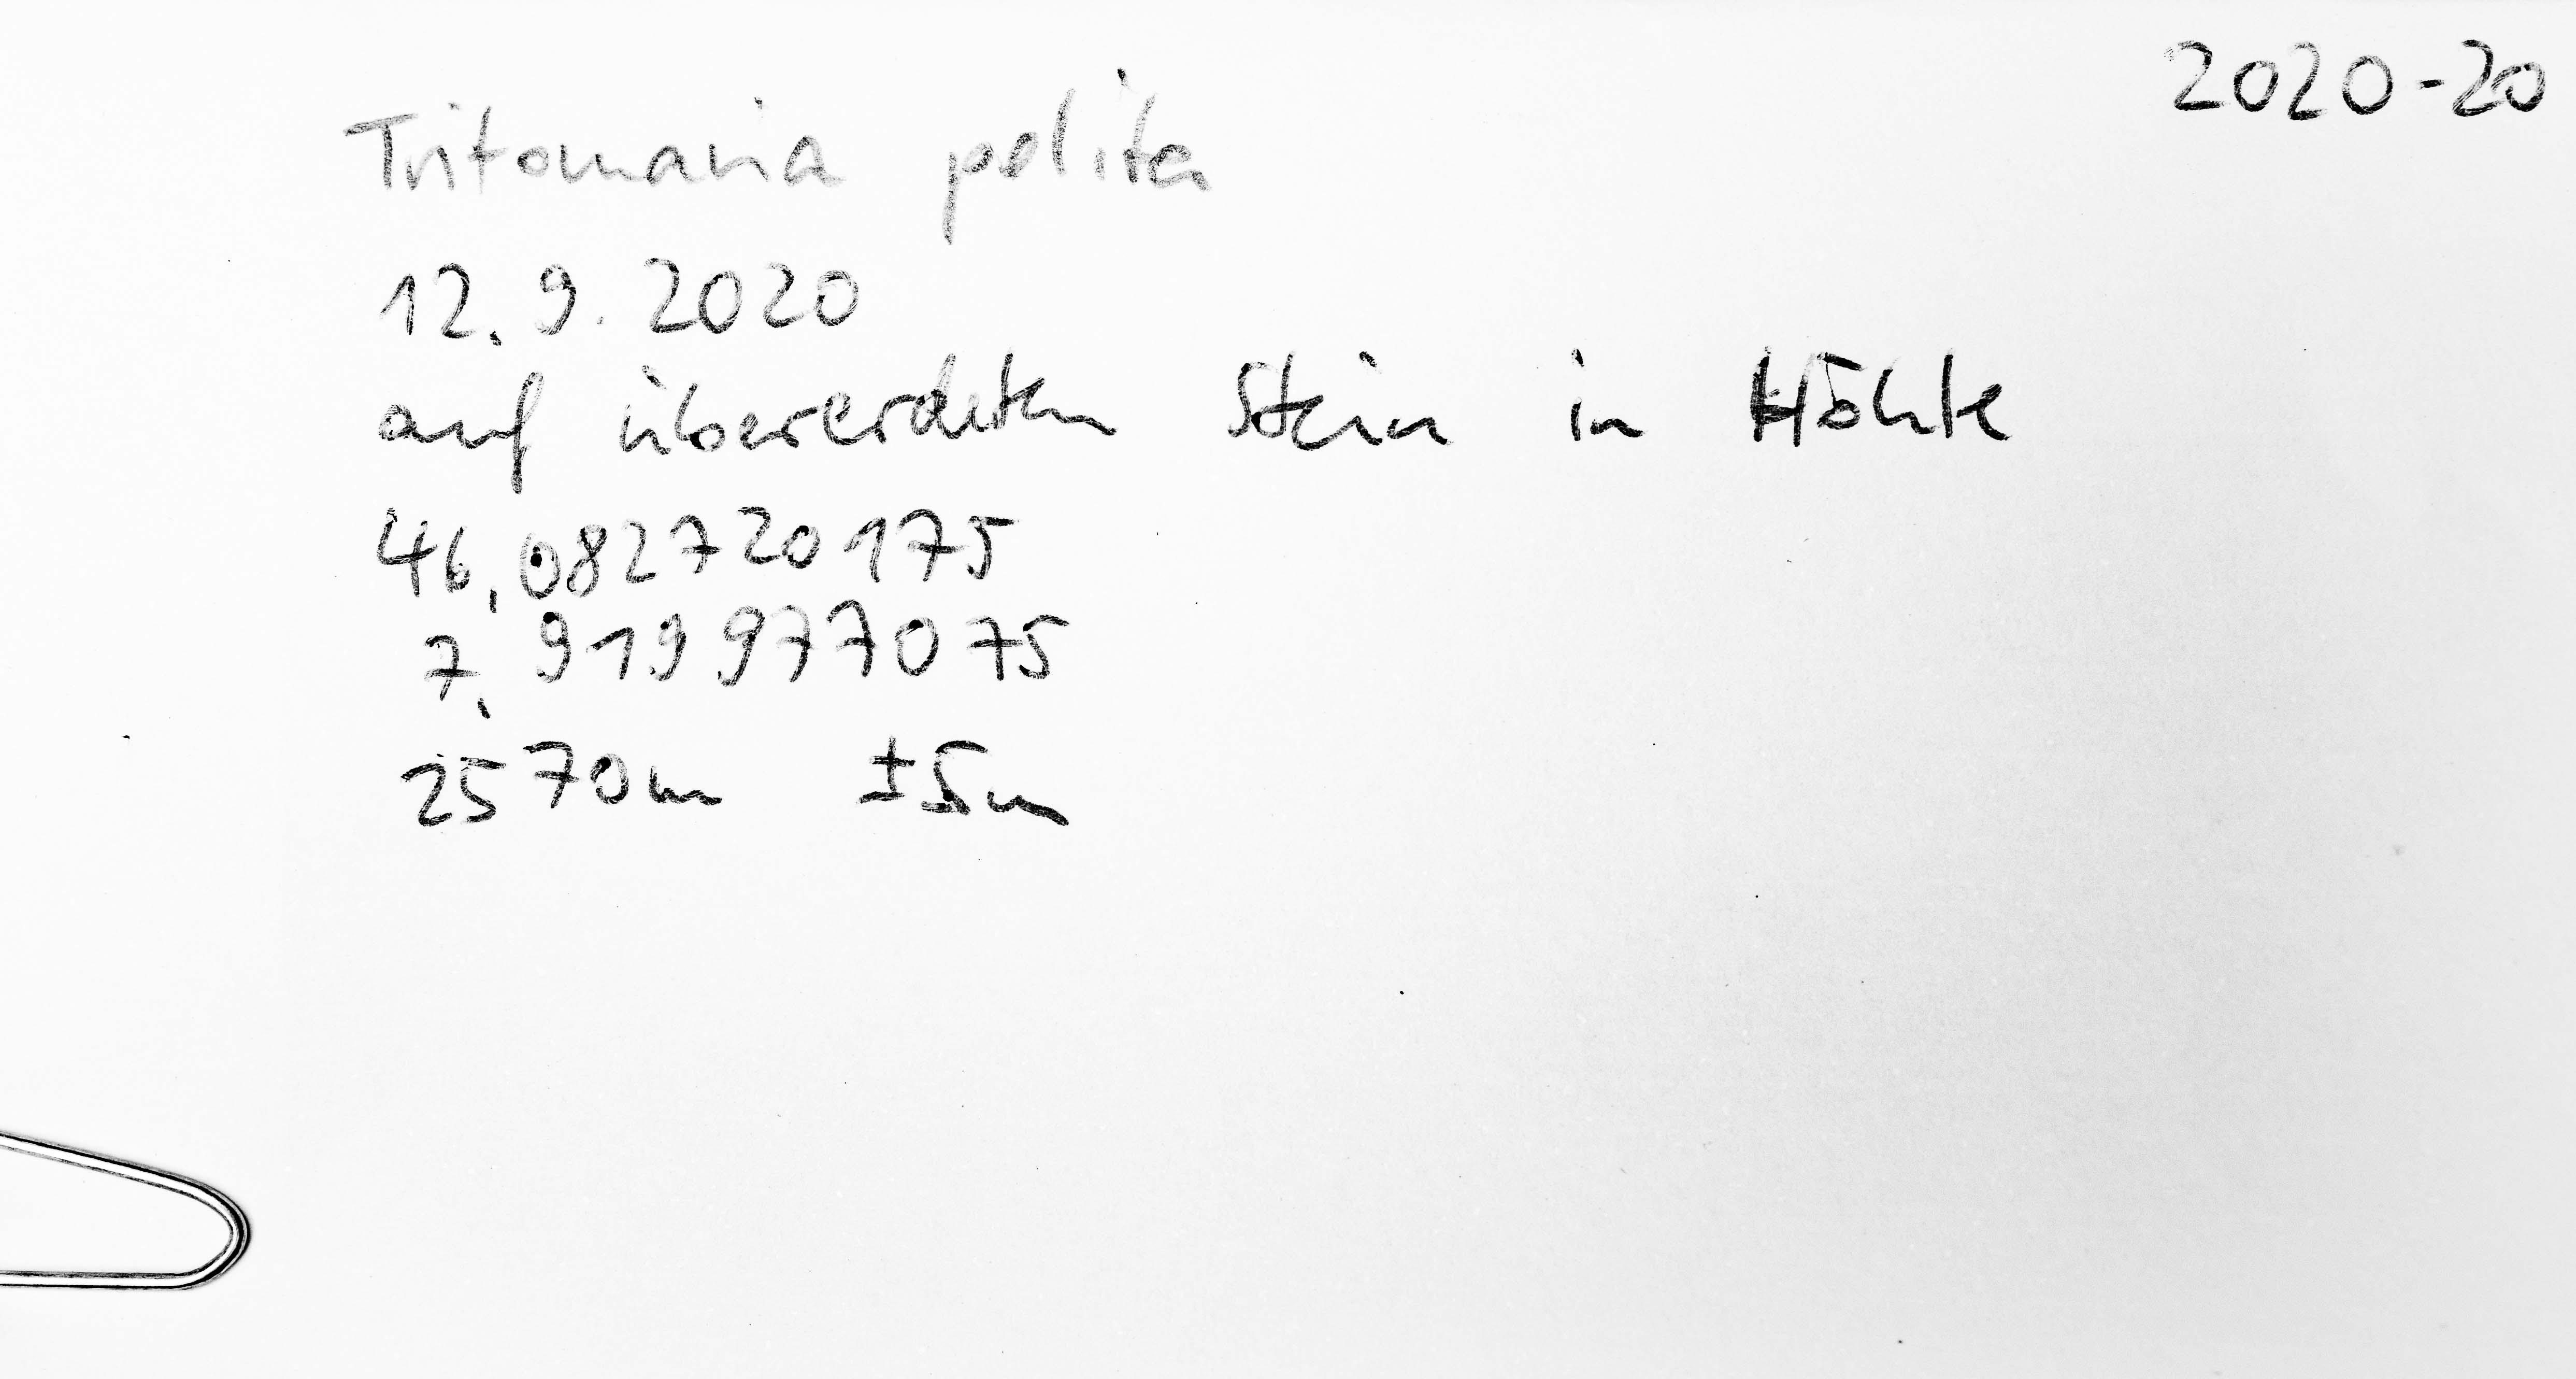 2020-20
Tritomaria polita
12.9.2020
auf übererdeten Stein in Höhle
46,082720175
7,919977075
2570m ±5m